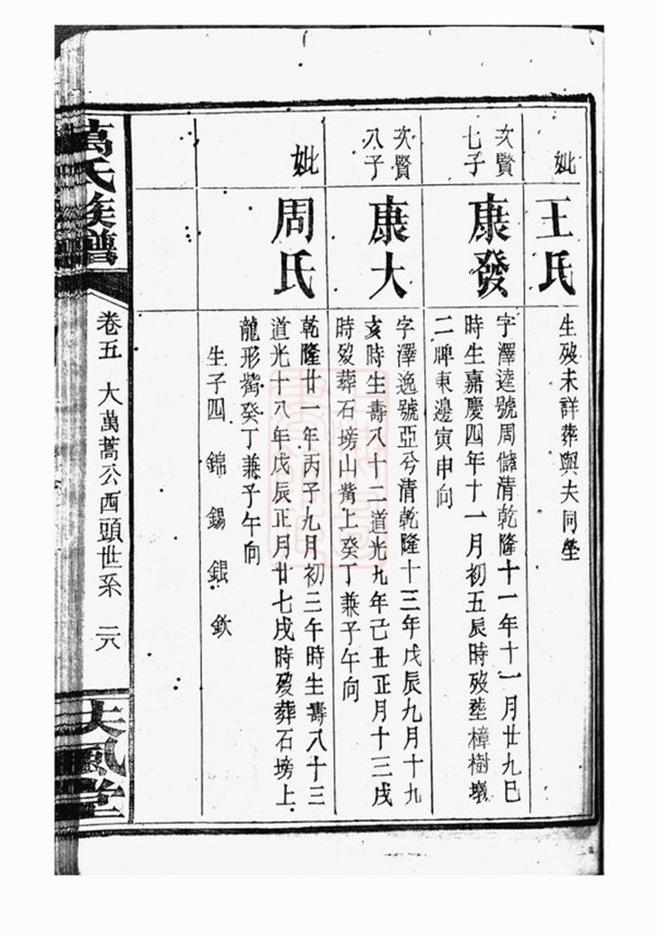 妣
王氏
生歿未詳葬與夫同塋
次賢
七子
康發
字澤達號周儲清乾隆十一年十一月廿九巳
時生嘉慶四年十一月初五辰時歿塟樟樹壋
二牌東邊寅申向
次賢
八子
康大
字澤逸號亞兮清乾隆十三年戊辰九月十九
亥時生壽八十二道光九年己丑正月十三戌
時歿葬石塝山觜上癸丁兼子午向
妣
周氏
乾隆廿一年丙子九月初二午時生壽八十三
道光十八年戊辰正月廿七戌時歿葬石塝上
龍形觜癸丁兼子午向
生子四 錦 錫 銀 欽
萬氏族譜
卷五 大萬蒿公西頭世系 二八
夫風堂